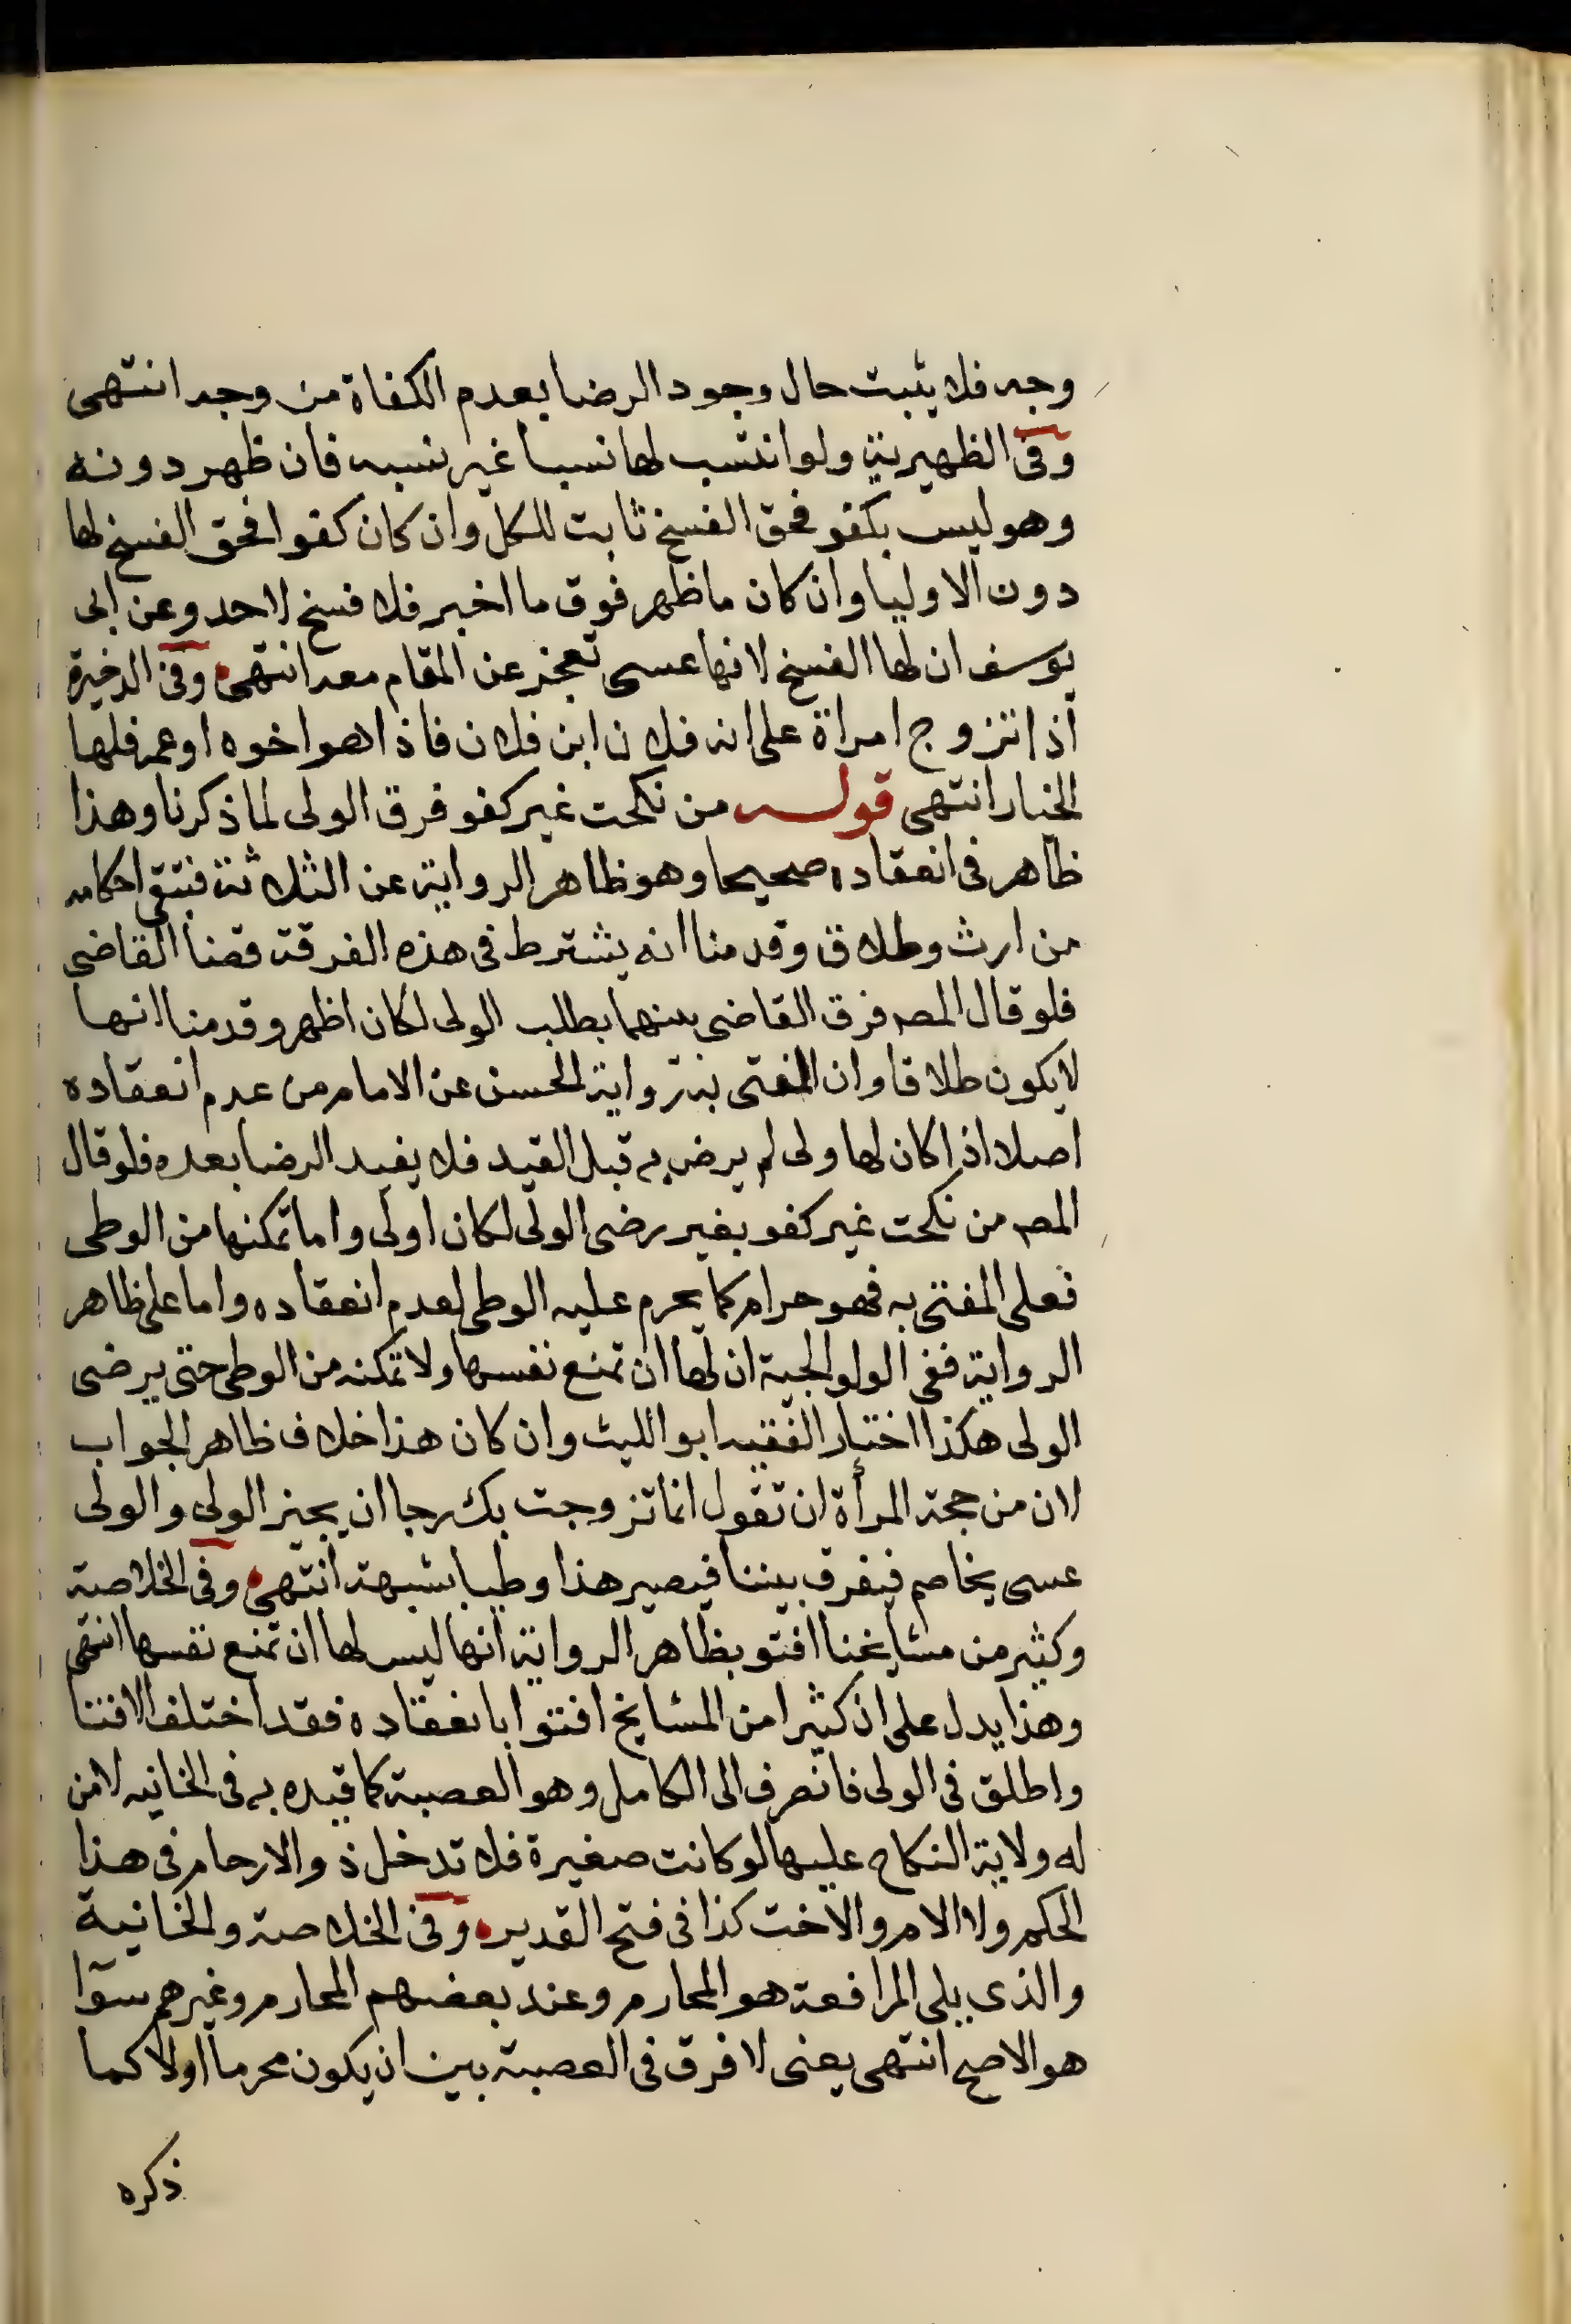 وجه فلا يثبت حال وجود الرضا بعدم الكفاة من وجه انتهى
وفى الظهيرية ولو انتسب لها نسبا غير نسبه فان ظهر دونه
وهو ليس بكفو فحق الفسخ ثابت للكل وان كان كفوا فحق الفسخ لها
دون الاوليا وان كان ما ظهر فوق ما اخبر فلا فسخ لاحد وعن ابى
يوسف ان لها الفسخ لانها عسى تعجز عن المقام معه انتهى وفى الذخيرة
اذا تزوج امراة على انه فلان ابن فلان فاذا هو اخوه او عمه فلها
الخيار انتهى قوله من نكحت غير كفو فرق الولى لما ذكرنا وهذا
ظاهر فى انعقاده صحيحا وهو ظاهر الرواية عن الثلاثة فتبقى احكامه
من ارث وطلاق وقدمنا انه يشترط فى هذه الفرقة قضا القاضى
فلو قال المصـ فرق القاضى بينهما بطلب الولى لكان اظهر وقدمنا انها
لا يكون طلاقا وان المفتى به رواية الحسن عن الامام من عدم انعقاده
اصلا اذا كان لها ولى لم يرض به قبل العقد فلا يفيد الرضا بعده فلو قال
المصـ من نكحت غير كفو بغير رضى الولى لكان اولى واما تمكنها من الوطى
فعلى المفتى به فهو حرام كما يحرم عليه الوطى لعدم انعقاده واما على ظاهر
الرواية ففى الولوالجية ان لها ان تمنع نفسها ولا تمكنه من الوطى حتى يرضى
الولى هكذا اختار الفقيه ابو الليث وان كان هذا خلاف ظاهر الجواب
لان من حجة المرأة ان تقول انما تزوجت بك رجا ان يجيز الولى والولى
عسى يخاصم فيفرق بيننا فيصير هذا وطيا بشبهة انتهى وفى الخلاصة
وكثير من مشايخنا افتو بظاهر الرواية انها ليس لها ان تمنع نفسها انتهى
وهذا يدل على ان كثيرا من المشايخ افتوا بانعقاده فقد اختلف الافتا
واطلق فى الولى فانصرف الى الكامل وهو العصبة كما قيده به فى الخانيه لا من
له ولاية النكاح عليها لو كانت صغيرة فلا تدخل ذوالارحام فى هذا
الحكم ولا الام والاخت كذا فى فتح القدير وفى الخلاصة والخانية
والذى يلى المرافعة هو المحارم وعند بعضهم المحارم وغيرهم سوآ
هو الاصح انتهى يعنى لا فرق فى العصبة بين ان يكون محرما اولا كما
ذكره